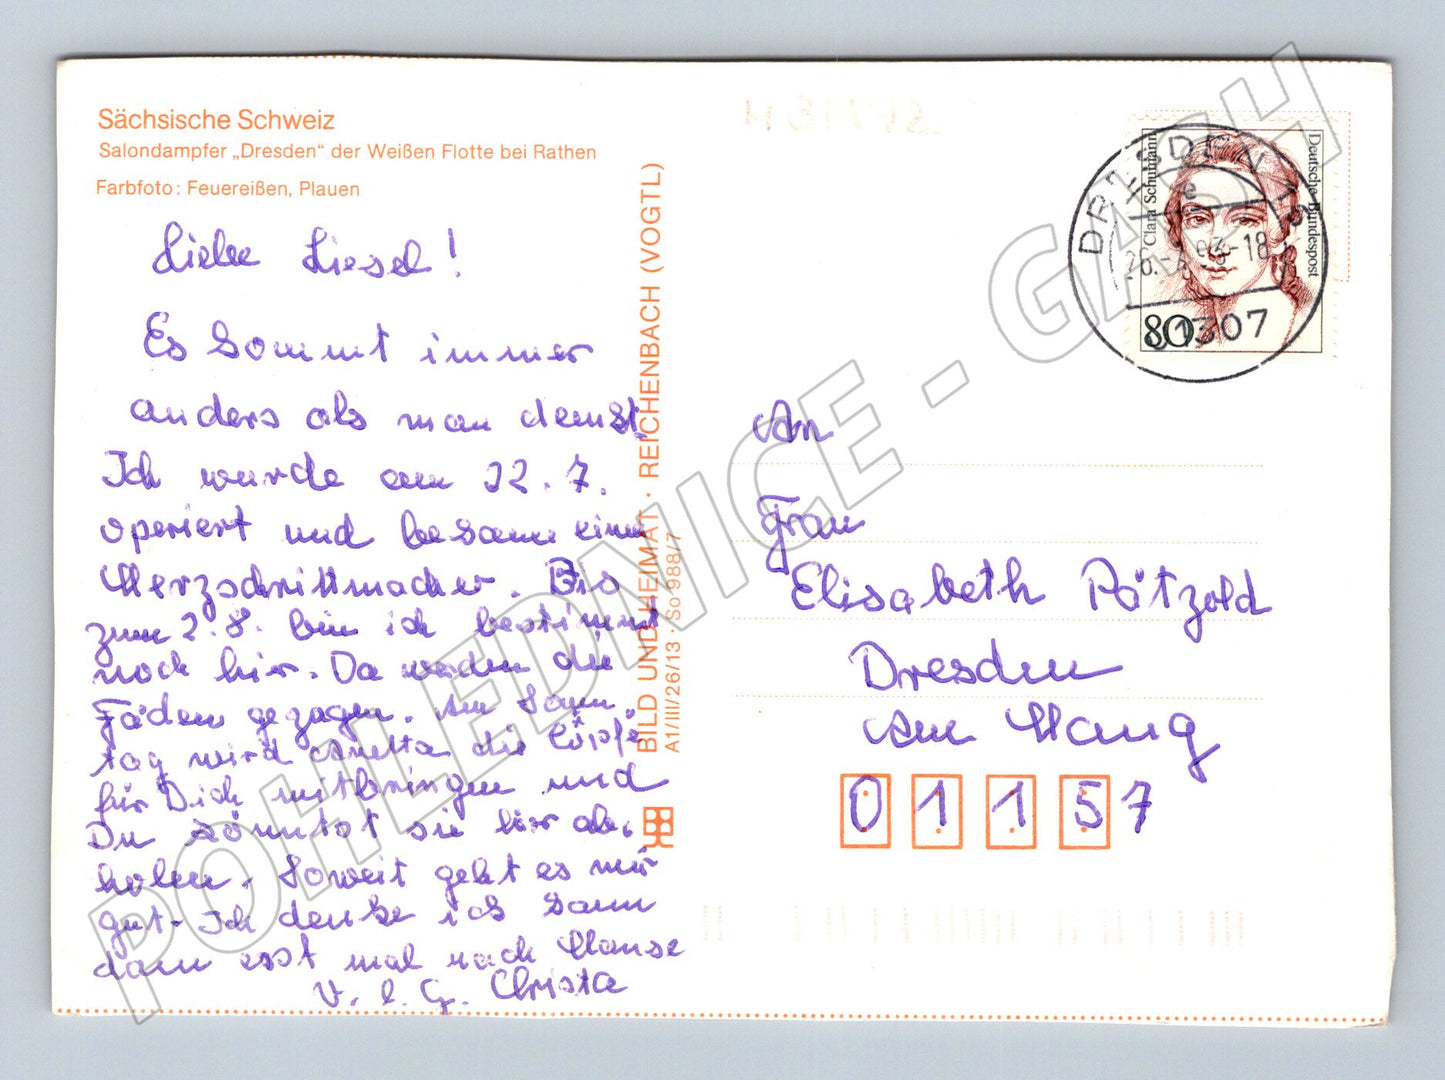 Sächsische Schweiz
Salondampfer „Dresden“ der Weißen Flotte bei Rathen
Farbfoto: Feuereißen, Plauen
Liebe Liesel!
Es kommt immer
anders als man denkt.
Ich wurde am 22.7.
operiert und bekam einen
Herzschrittmacher. Bis
zum 2.8. bin ich bestimmt
noch hier. Da werden die
Fäden gezogen. Am Sonn
tag wird Anetta die Töpfe
für Dich mitbringen und
Du könntst sie hier ab-
holen. Soweit geht es mir
gut. Ich denke ich kann
dann erst mal nach Hause
V. l. G. Christa
BILD UND HEIMAT · REICHENBACH (VOGTL)
A1/III/26/13 · So 988/7
Clara Schumann
Deutsche Bundespost
80
DRESDEN
e
26.-7.93-18
01307
An
Frau
Elisabeth Pätzold
Dresden
Am Hang
01157
POHLEDNICE - GASH